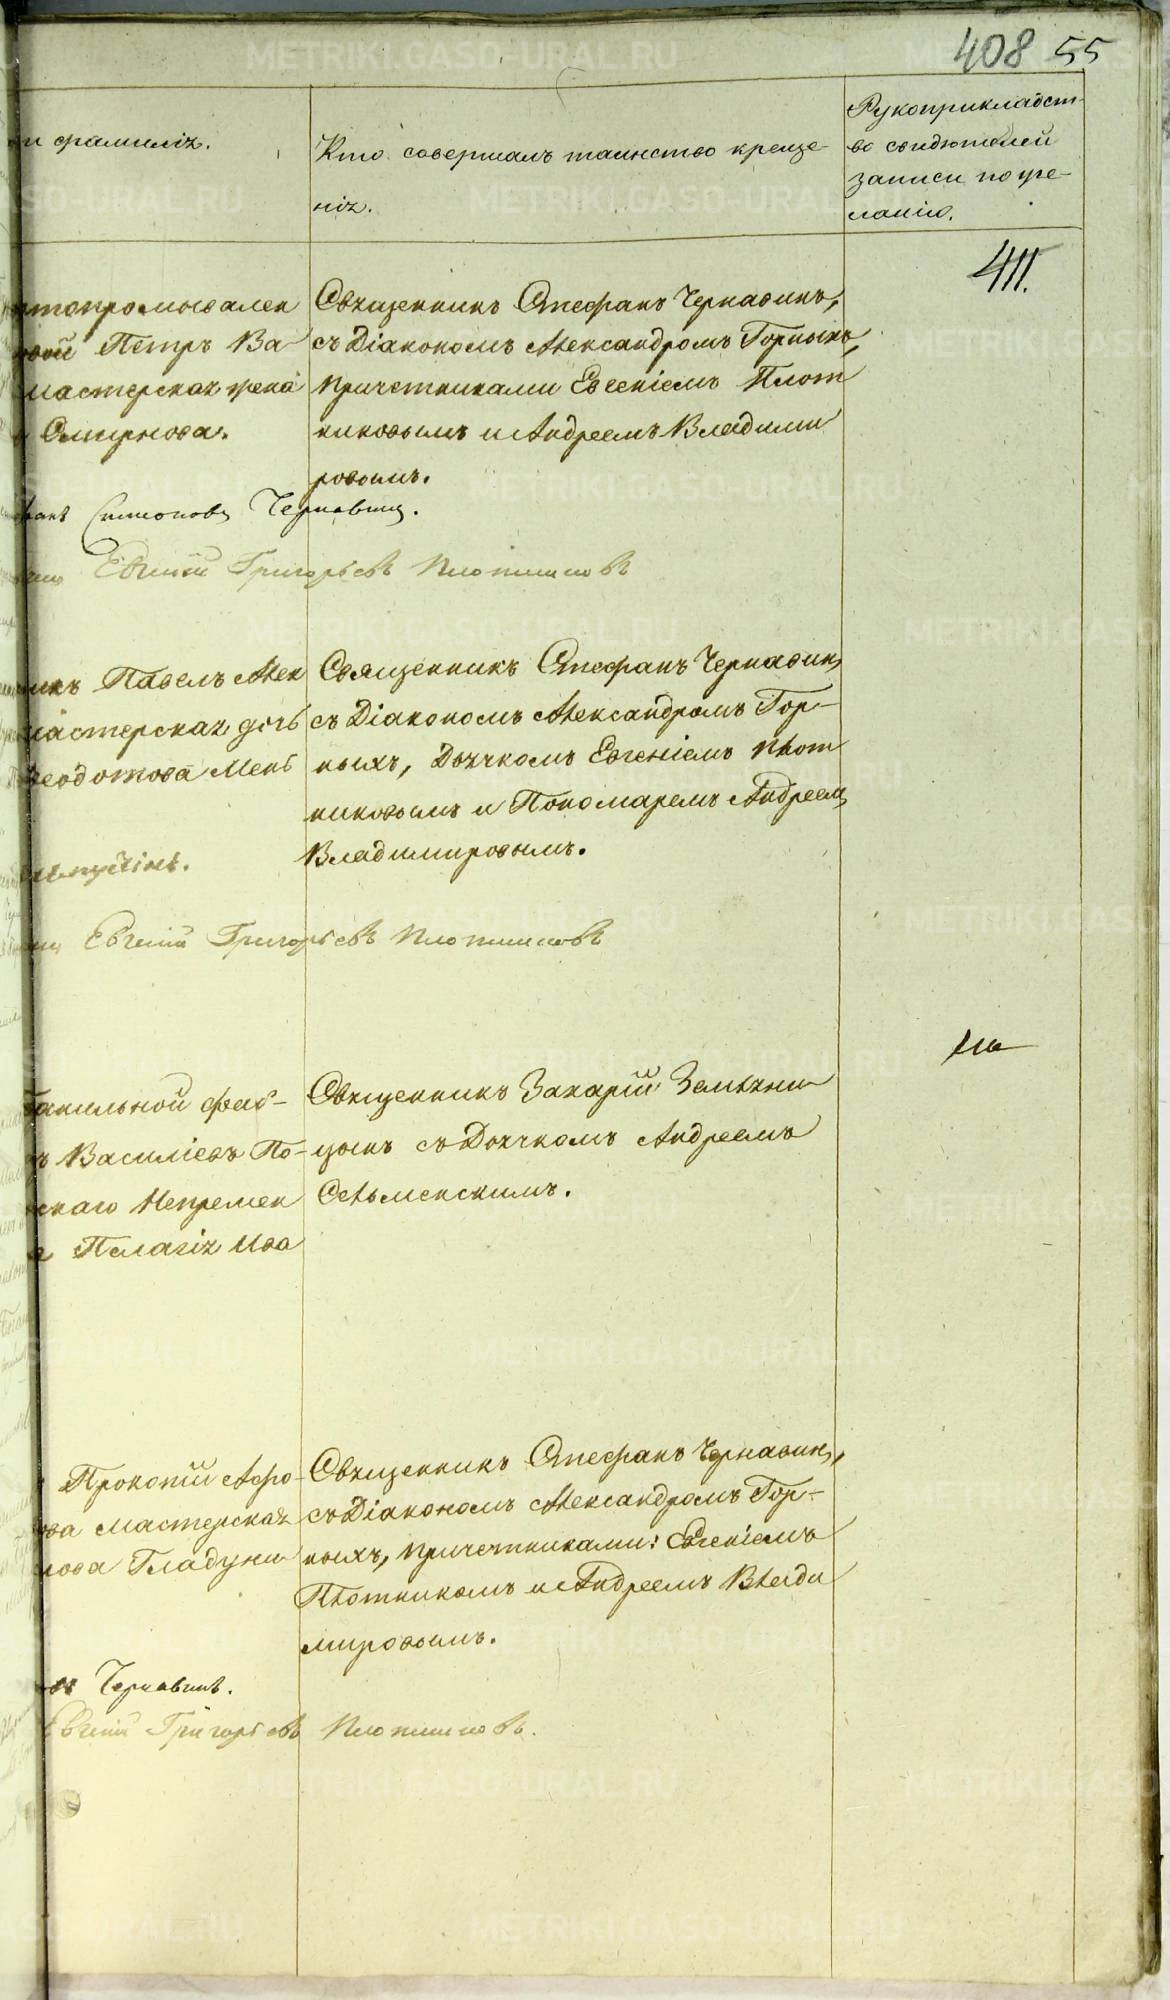 408 55
и фамилія.
Кто совершалъ таинство креще-
нія.
Рукоприкладст-
во свидѣтелей
записи по же-
ланію.
411.
Петръ Ва-
мастерская жена
Смирнова.
Священникъ Стефанъ Чернавинъ,
съ Діакономъ Александромъ Горныхъ,
причетниками Евгеніемъ Плот
никовымъ и Андреемъ Владими
ровымъ.
Симеоновъ Чернавинъ.
Евгеній Григорьевъ Плотниковъ
Павелъ Алек
мастерская дочь
Ѳеодотова Мень
Священникъ Стефанъ Чернавинъ
съ Діакономъ Александромъ Гор-
ныхъ, Дьячкомъ Евгеніемъ Плот
никовымъ и Пономаремъ Андреемъ
Владимировымъ.
Евгеній Григорьевъ Плотниковъ
Василіевъ По-
скаго Непремен
Пелагія Ива
Священникъ Захарій Земляни
цынъ съ Дьячкомъ Андреемъ
Сельменскимъ.
Прокопій Афо-
ова мастерская
нова Гладуни
Священникъ Стефанъ Чернавинъ,
съ Діакономъ Александромъ Гор-
ныхъ, причетниками: Евгеніемъ
Плотникомъ и Андреемъ Влади
мировымъ.
Чернавинъ.
Евгеній Григорьевъ Плотниковъ.
METRIKI.GASO-URAL.RU